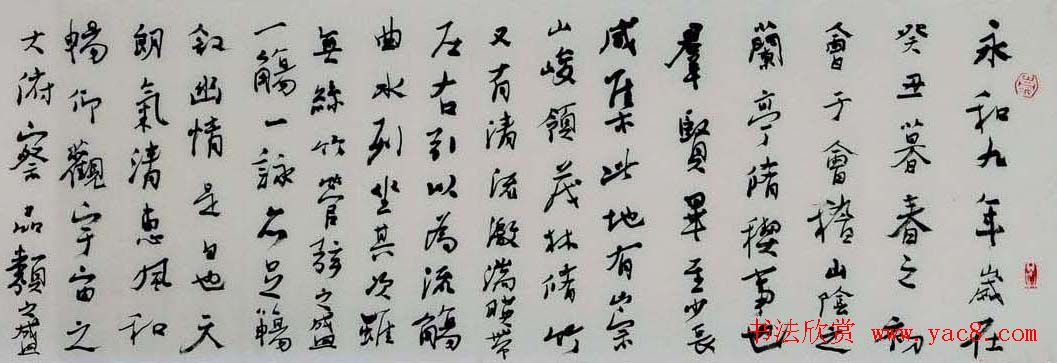 永和九年歲在
癸丑暮春之初
會于會稽山陰之
蘭亭脩稧事也
羣賢畢至少長
咸集此地有崇
山峻領茂林脩竹
又有清流激湍暎帶
左右引以為流觴
曲水列坐其次雖
無絲竹管弦之盛
一觴一詠亦足暢
敘幽情是日也天
朗氣清惠風和
暢仰觀宇宙之
大俯察品類之盛
书法欣赏 www.yac8.com